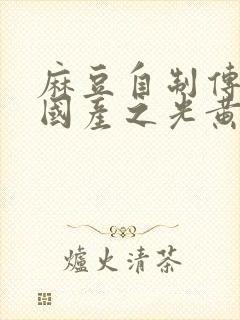 麻豆自制傳
國產之光黃
爐火清茶